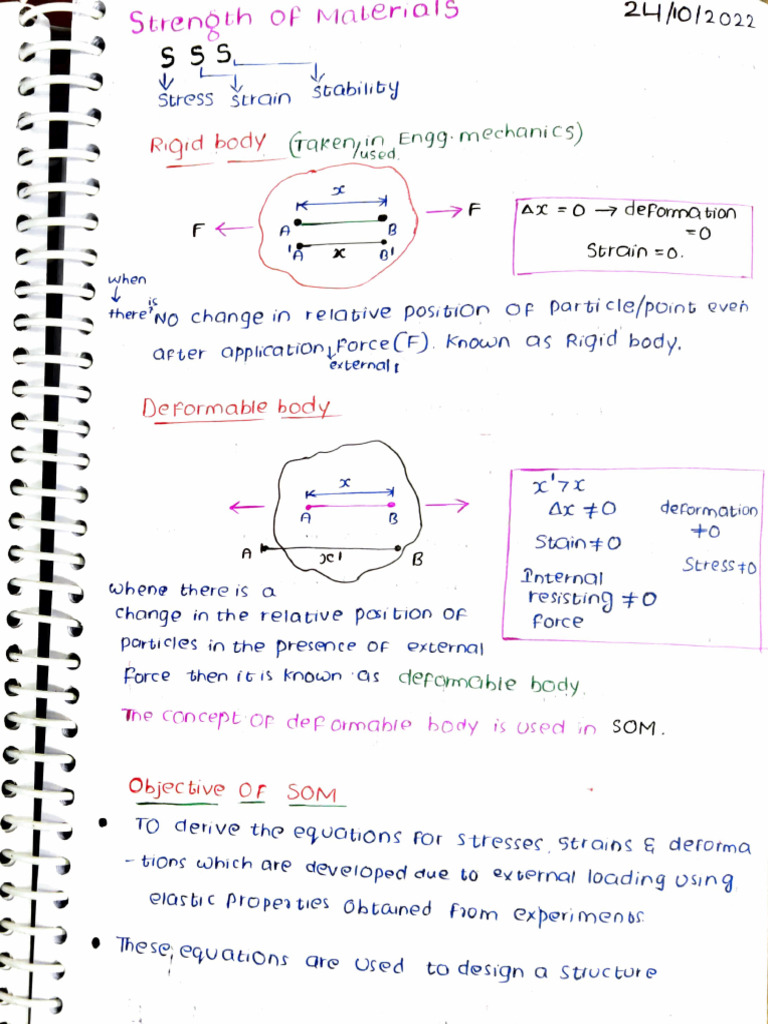 Strength OF Materials
24/10/2022
S S S
Stress Strain Stability
Rigid body (Taken/used in Engg. mechanics)
x
F F
A B
'A x B'
Δx = 0 → deformation
= 0
Strain = 0.
when
there is NO change in relative position of particle/point even
after application, force (F). Known as Rigid body.
external
Deformable body
x
A B
A x' B
x' > x
Δx ≠ 0 deformation
≠ 0
Stain ≠ 0
Stress ≠ 0
Internal
resisting ≠ 0
force
whene there is a
change in the relative position of
particles in the presence of external
force then it is known as deformable body.
The concept of deformable body is used in SOM.
Objective OF SOM
• TO derive the equations for stresses, strains & deforma
-tions which are developed due to external loading using
elastic properties obtained from experiments.
• These equations are used to design a structure